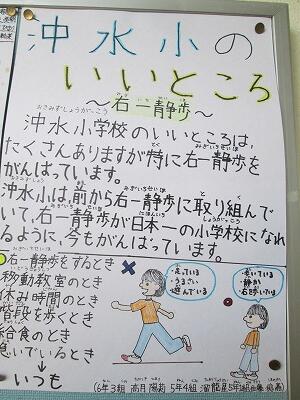 沖水小の
いいところ
～右一静歩～
おきみずしょうがっこう
沖水小学校のいいところは,
たくさんありますが特に右一静歩を
がんばっています。
沖水小は,前から右一静歩に取り組んで
いて,右一静歩が日本一の小学校になれ
るように,今もがんばっています。
右一静歩をするとき
移動教室のとき
休み時間のとき
階段を歩くとき
給食のとき
急いでいるとき
↓
いつも
×
・走っている
・うるさい
・遊んでいる
○
・歩いている
・静か
・右側
(6年3組 高月 陽莉 5年4組